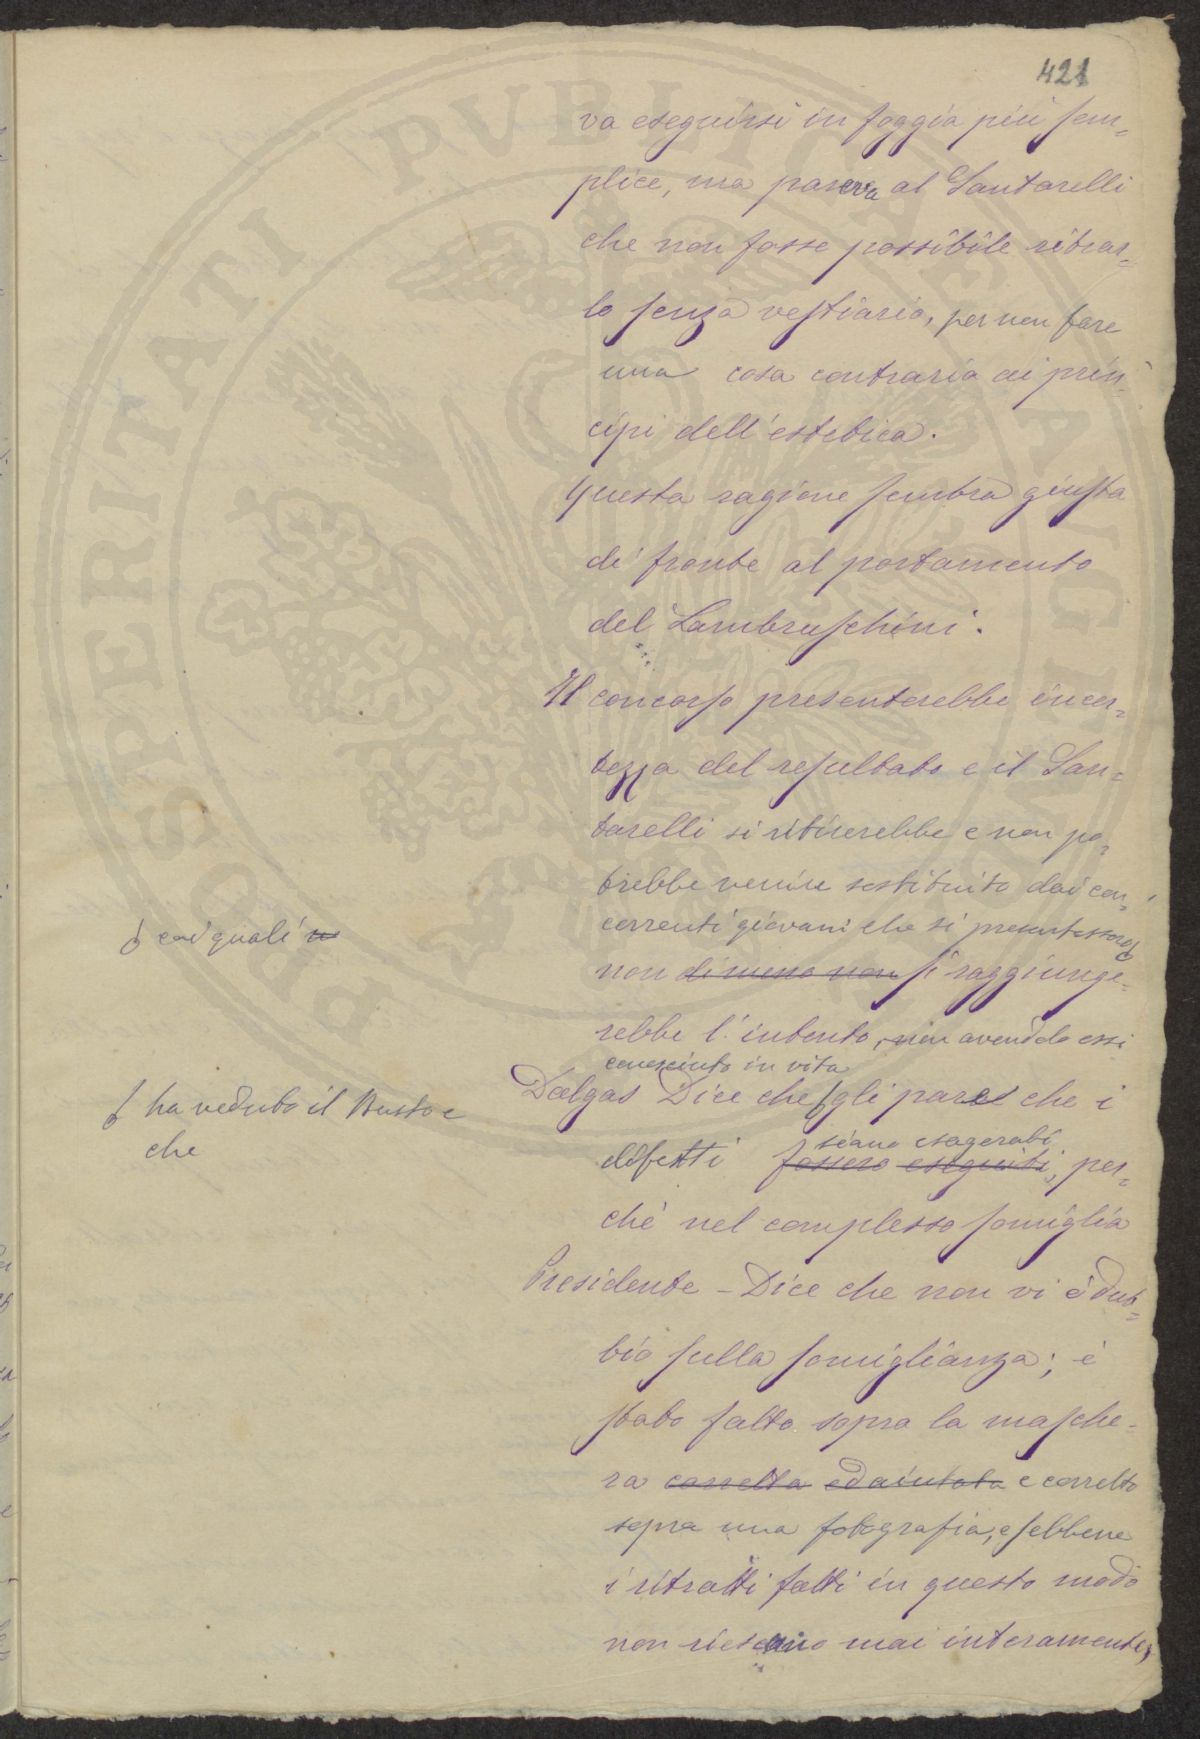 421
va eseguirsi in foggia più sem=
plice, ma pareva al Santarelli
che non fosse possibile ritrar=
lo senza vestiario, per non fare
una cosa contraria ai prin=
cipi dell'estetica.
Questa ragione sembra giusta
di fronte al portamento
del Lambruschini.
Il concorso presenterebbe incer=
tezza del resultato e il San=
tarelli si ritirerebbe e non po=
trebbe venire sostituito dai con=
correnti giovani che si presentassero
coi quali n
non di meno non si raggiunge=
rebbe l'intento, non avendolo essi
conosciuto in vita
Dalgas Dice che gli pare che i
ha veduto il Busto e
che
difetti fossero eseguiti, per=
siano esagerati
chè nel complesso somiglia
Presidente - Dice che non vi è dub=
bio sulla somiglianza; è
stato fatto sopra la masche=
ra corretta ed aiutata e corretto
sopra una fotografia, e sebbene
i ritratti fatti in questo modo
non riescano mai interamente,
PROSPERITATI PVBLICAE AVGENDAE